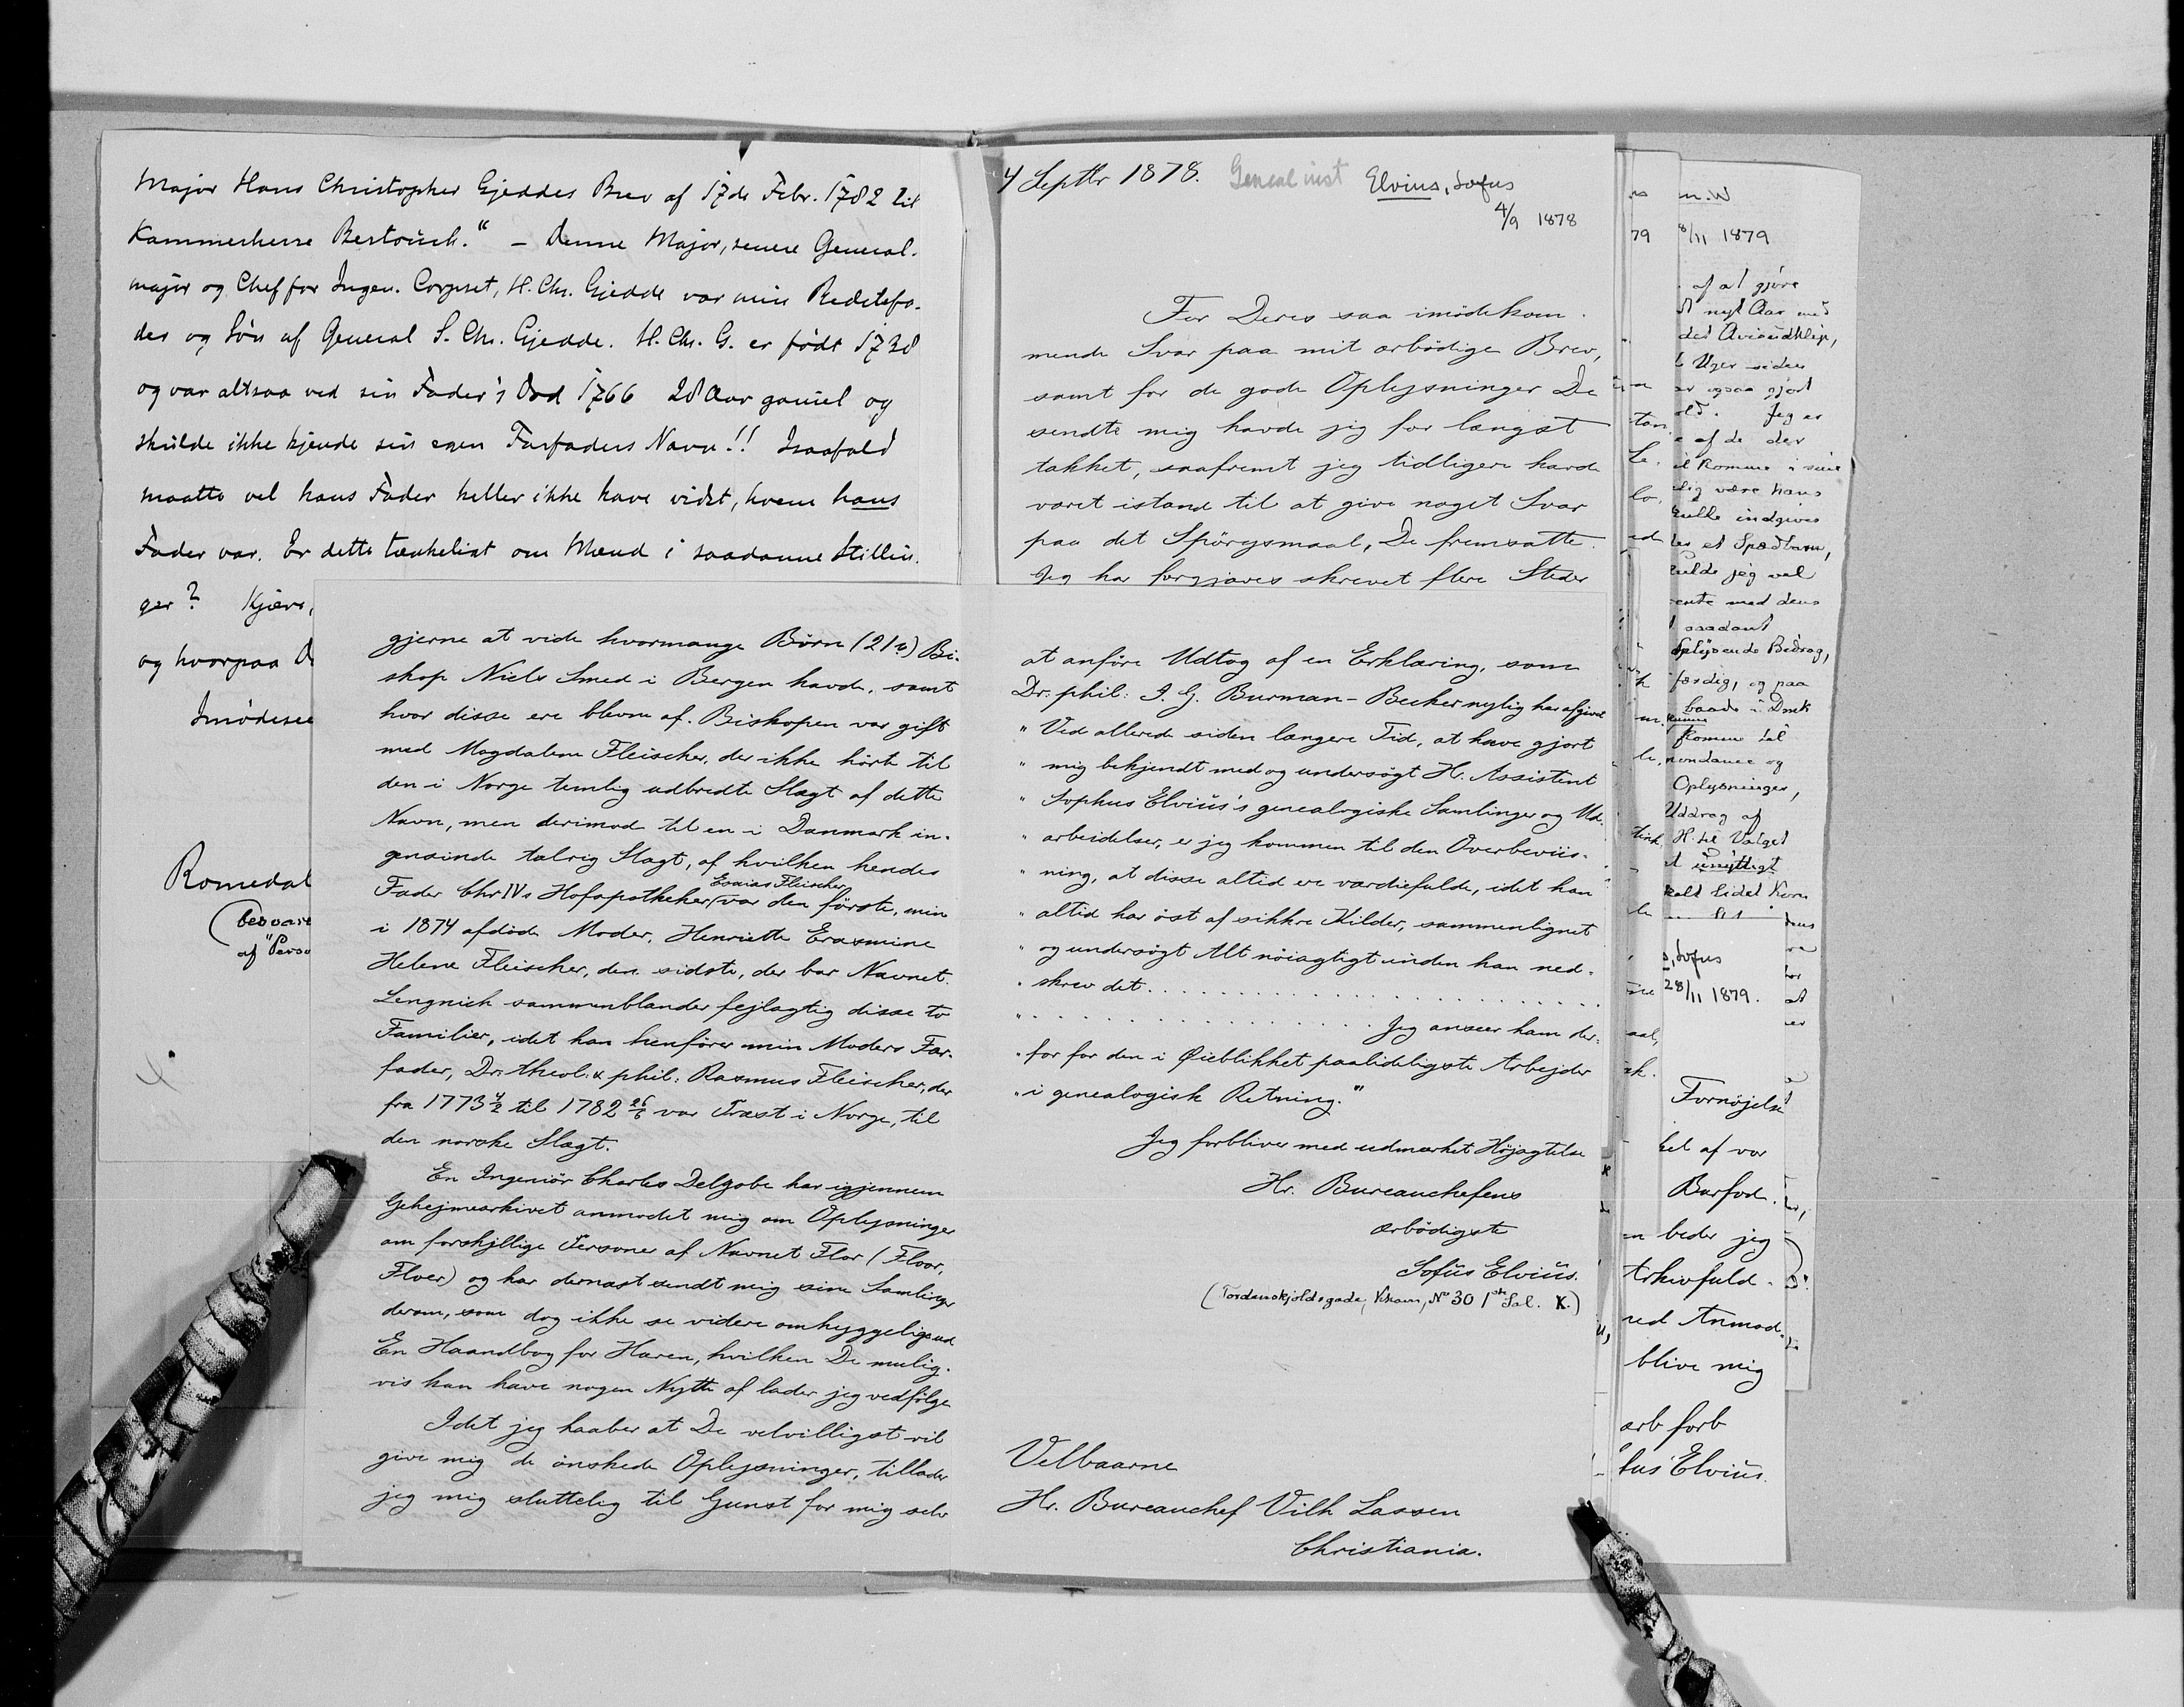 Major Hans Christopher Gjeddes Brev af 17de Febr. 1782 til
Kammerherre Bertouch." – Denne Major, senere General-
major og Chef for Ingen. Corpset, H. Chr. Gjedde var min Bedstefa-
der og Søn af General S. Chr. Gjedde. H. Chr. G. er født 1738
og var altsaa ved sin Fader's Død 1766 28 Aar gamel og
skulde ikke kjende sin egen Farfaders Navn!! Isaafald
maatte vel hans Fader heller ikke have vidst, hvem hans
Fader var. Er dette tænkeligt om Mænd i saadanne Stillin-
ger? Kjære,
og hvorpaa D
Imødesee
Romedal
(besvare
af "Perso
4 Septbr 1878. Geneal inst Elvius, Sofus
4/9 1878
For Deres saa imødekom-
mende Svar paa mit ærbødige Brev,
samt for de gode Oplysninger De
sendte mig havde jeg for længst
takket, saafremt jeg tidligere havde
været istand til at give noget Svar
paa det Spörgsmaal, De fremsatte.
Jeg har forgjæves skrevet flere Steder
gjerne at vide hvormange Børn (21?) Bi-
skop Niels Smed i Bergen havde, samt
hvor disse ere blevne af. Biskopen var gift
med Magdalene Fleischer, der ikke hörte til
den i Norge temlig udbredte Slægt af dette
Navn, men derimod til en i Danmark in-
gensinde talrig Slægt, af hvilken hendes
Fader Chr IVs Hofapotheker Esaias Fleischer var den förste, min
i 1874 afdöde Moder, Henriette Erasmine
Helene Fleischer, den sidste, der bar Navnet.
Lengnick sammenblander fejlagtig disse to
Familier, idet han henförer min Moders Far-
fader, Dr. theol. & phil: Rasmus Fleischer, der
fra 1773 4/2 til 1782 26/6 var Præst i Norge, til
den norske Slægt.
En Ingeniör Charles Delgobe har igjennem
Gehejmearkivet anmodet mig om Oplysninger
om forskjllige Personer af Navnet Flor (Floor,
Floer) og har dernæst sendt mig sine Samlinger
derom, som dog ikke se videre omhyggelige ud
En Haandbog for Hæren, hvilken De mulig-
vis kan have nogen Nytte af lader jeg vedfölge
Idet jeg haaber at De velvilligst vil
give mig de önskede Oplysninger, tillader
jeg mig sluttelig til Gunst for mig selv
at anføre Udtog af en Erklæring, som
Dr. phil: I. G. Burman-Becker nylig har afgivet
" Ved allerede siden længere Tid, at have gjort
" mig bekjendt med og undersøgt Hr. Assistent
" Sophus Elvius's genealogiske Samlinger og Ud-
" arbeidelser, er jeg kommen til den Overbeviis-
" ning, at disse altid ere værdiefulde, idet han
" altid har öst af sikkre Kilder, sammenlignet
" og undersøgt Alt nöiagtigt inden han ned-
" skrev det . . . . . . . . . . . . . . . . . .
" . . . . . . . . . . . . . Jeg anseer ham der-
" for for den i Øieblikket paalideligste Arbejder
" i genealogisk Retning."
Jeg forbliver med udmærket Höjagtelse
Hr. Bureauchefens
ærbödigste
Sofus Elvius.
(Tordenskjoldsgade, No 30 1ste Sal. K.)
Velbaarne
Hr. Bureauchef Vilh Lassen
Christiania.
n. W
79 8/11 1879
af at gjöre
nyt Aar med
Uger siden
også gjort
Jeg er
af de der
komme i sine
være hans
indgives
et Spædbarn,
jeg vel
med dens
saadant
Oplysende Bidrag,
færdig, og paa
baade i Druk
kunne
komme til
Oplysninger,
Uddrag af
H. til Valget
unyttigt
s, Sofus
28/11 1879.
Fornöjelse
ket af vor
Barfod.
n beder jeg
Arkivfuld-
ved Anmod-
blive mig
ærb forb
fus Elvius.